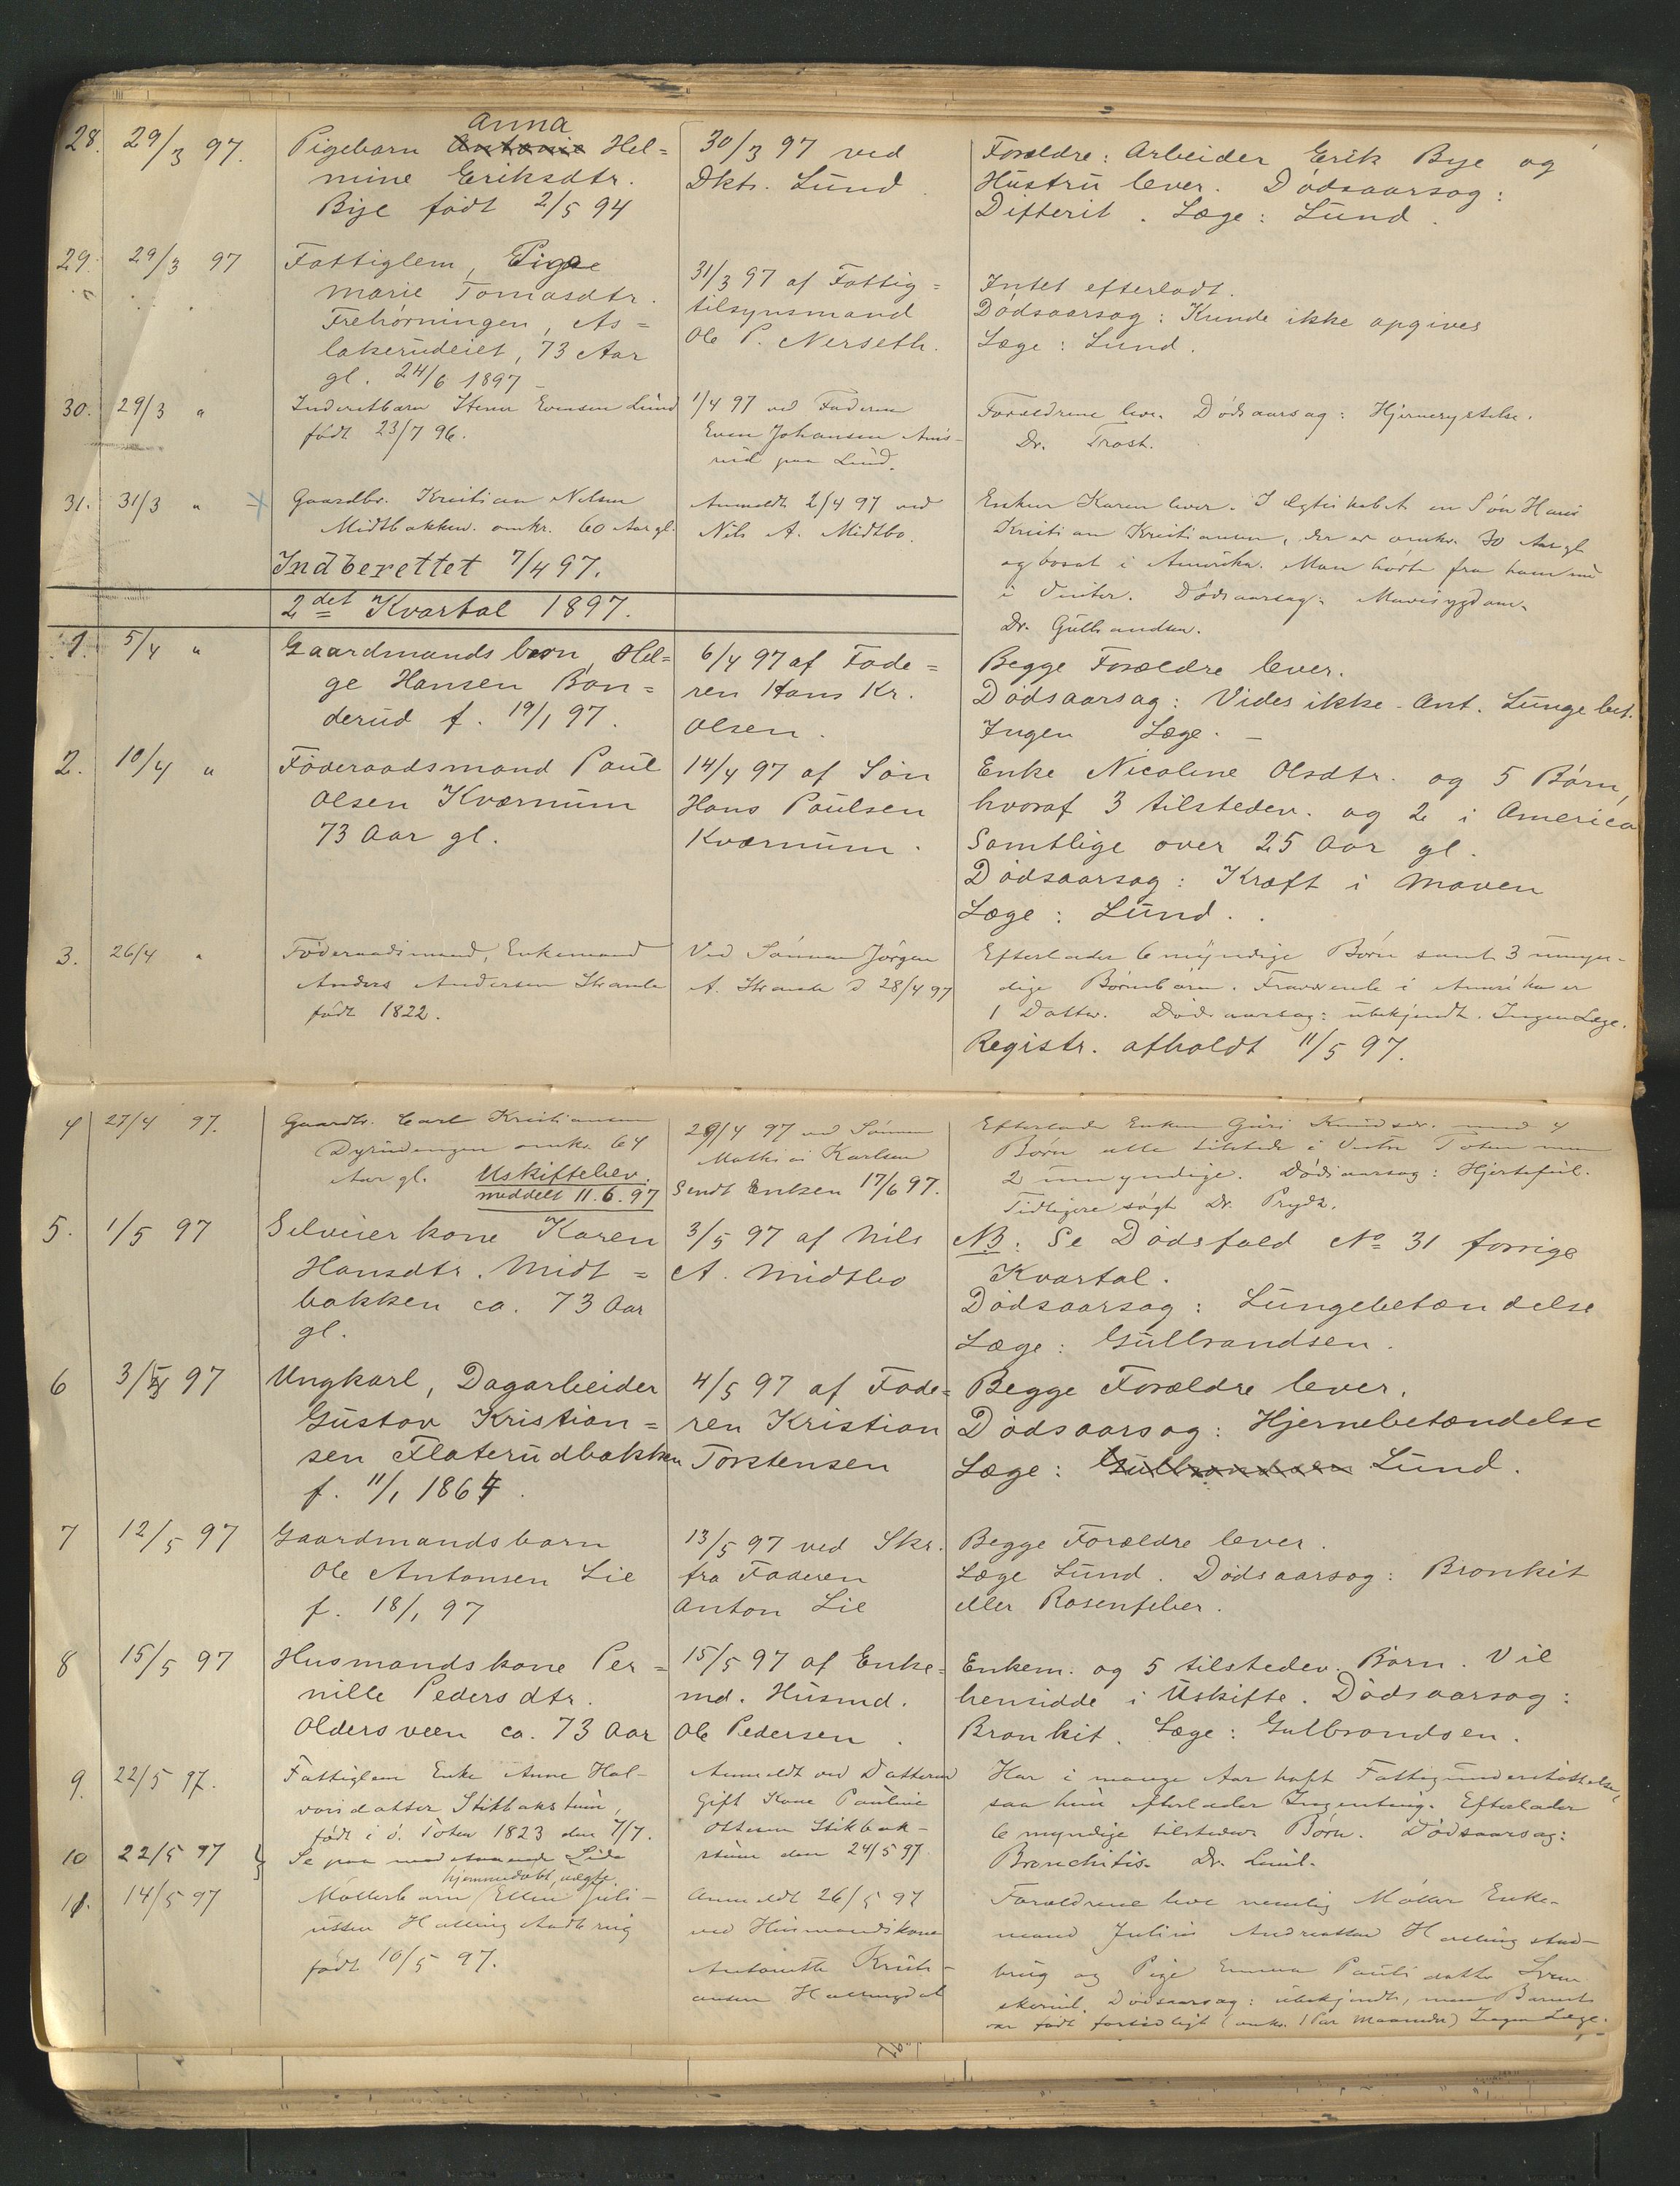 28. 29/3 97. Pigebarn Anna Hel=
mine Eriksdtr.
Bye født 2/5 94
30/3 97 ved
Dktr. Lund.
Forældre: Arbeider Erik Bye og
Hustru lever. Dødsaarsag:
Difterit. Læge: Lund.
29. 29/3 97 Fattiglem, Pige
Marie Tomasdtr.
Trehørningen, As=
lakerudeiet, 73 Aar
gl. 24/6 1897
31/3 97 af Fattig=
tilsynsmand
Ole P. Nerseth.
Intet efterladt.
Dødsaarsag: Kunde ikke opgives
Læge: Lund.
30. 29/3 " Inderstbarn Evensen Lund
født 23/7 96.
1/4 97 ved Faderen
Even Johansen
rud paa Lund.
Forældrene lever. Dødsaarsag: Hjernerystelse.
Dr. Trost.
31. 31/3 " Gaardbr. Kristian Nilsen
Midtbakken. omkr. 60 Aar gl.
Indberettet 7/4 97.
Anmeldt 2/4 97 ved
Nils A. Midtbo.
Enken Karen lever. I Ægteskabet en Søn Hans
Kristian Kristiansen, der er omkr. 30 Aar gl.
og bosat i Amerika. Man hørte fra ham nu
i Vinter. Dødsaarsag: Mavesygdom.
Dr. Gulbrandsen.
2det Kvartal 1897.
1. 5/4 " Gaardmandsbarn, Hel=
ge Hansen Bon=
derud f. 19/1 97.
6/4 97 af Fade=
ren Hans Kr.
Olsen.
Begge Forældre lever.
Dødsaarsag: Vides ikke. Ant. Lungebet.
Ingen Læge. –
2. 10/4 " Føderaadsmand Paul
Olsen Kværnum
73 Aar gl.
14/4 97 af Søn
Hans Paulsen
Kværnum.
Enke Nicoline Olsdtr. og 5 Børn,
hvoraf 3 tilstedev. og 2 i America
Samtlige over 25 Aar gl.
Dødsaarsag: Kræft i Maven
Læge: Lund.
3. 26/4 " Føderaadsmand, Enkemand
Anders Andersen Strande
født 1822.
Ved Sønnen Jørgen
A. Strande d 28/4 97
Efterlader 6 myndige Børn samt 3 umyn-
dige Børnebørn. Fraværende i Amerika er
1 Datter. Dødsaarsag: ubekjendt. Ingen Læge.
Registr. afholdt 11/5 97.
4 27/4 97. Gaardbr. Carl Kristiansen
Dyrudengen omkr. 64
Aar gl. Uskiftebev.
meddelt 11.6.97
29/4 97 ved Sønnen
Mathias Karlsen
Sendt Enken 17/6 97.
Efterlader Enken Guri Knudsdr. med 4
Børn alle tilstede i Vestre Toten
2 umyndige. Dødsaarsag: Hjertefeil.
Tidligere søgt Dr. Prydz.
5. 1/5 97 Selveierkone Karen
Hansdtr. Midt=
bakken ca. 73 Aar
gl.
3/5 97 af Nils
A. Midtbo
NB: Se Dødsfald No 31 forrige
Kvartal.
Dødsaarsag: Lungebetændelse
Læge: Gulbrandsen.
6 3/5 97 Ungkarl, Dagarbeider
Gustav Kristian=
sen Flaterudbakken
f. 11/1 1864.
4/5 97 af Fade=
ren Kristian
Torstensen
Begge Forældre lever.
Dødsaarsag: Hjernebetændelse
Læge: Gulbrandsen Lund.
7 12/5 97 Gaardmandsbarn
Ole Antonsen Lie
f. 18/1 97
13/5 97 ved Skr.
fra Faderen
Anton Lie
Begge Forældre lever.
Læge Lund. Dødsaarsag: Bronkit
eller Rosenfeber.
8 15/5 97 Husmandskone Per=
nille Pedersdtr.
Oldersveen ca. 73 Aar
15/5 97 af Enke=
md. Husmd.
Ole Pedersen.
Enkem. og 5 tilstedev. Børn. Vil
hensidde i Uskifte. Dødsaarsag:
Bronkit. Læge: Gulbrandsen.
9. 22/5 97. Fattiglem Enke Anne Hal-
vorsdatter Stikbakstuen,
født i Ø. Toten 1823 den 7/7.
Anmeldt ved Datteren
Gift Kone Pauline
Ottesen Stikbak-
stuen den 24/5 97.
Har i mange Aar haft Fattigunderstøttelse,
saa hun efterlader Ingenting. Efterlader
6 myndige tilstedev. Børn. Dødsaarsag:
Bronchitis. Dr. Lund.
10 22/5 97 Se paa modstaaende Side
11. 14/5 97 hjemmedøbt, uægte
Møllerbarn Ellen Juli-
ussen Hasling Aadbrug
født 10/5 97.
Anmeldt 26/5 97
ved Husmandskone
Antonette Kristi-
ansen
Forældrene leve nemlig Møller Enke-
mand Julius Andreassen Aad-
brug og Pige Emma Paulsdatter
Dødsaarsag: ubekjendt, men Barnet
var født fortidligt (omkr. 1 Par Maaneder) Ingen Læge.